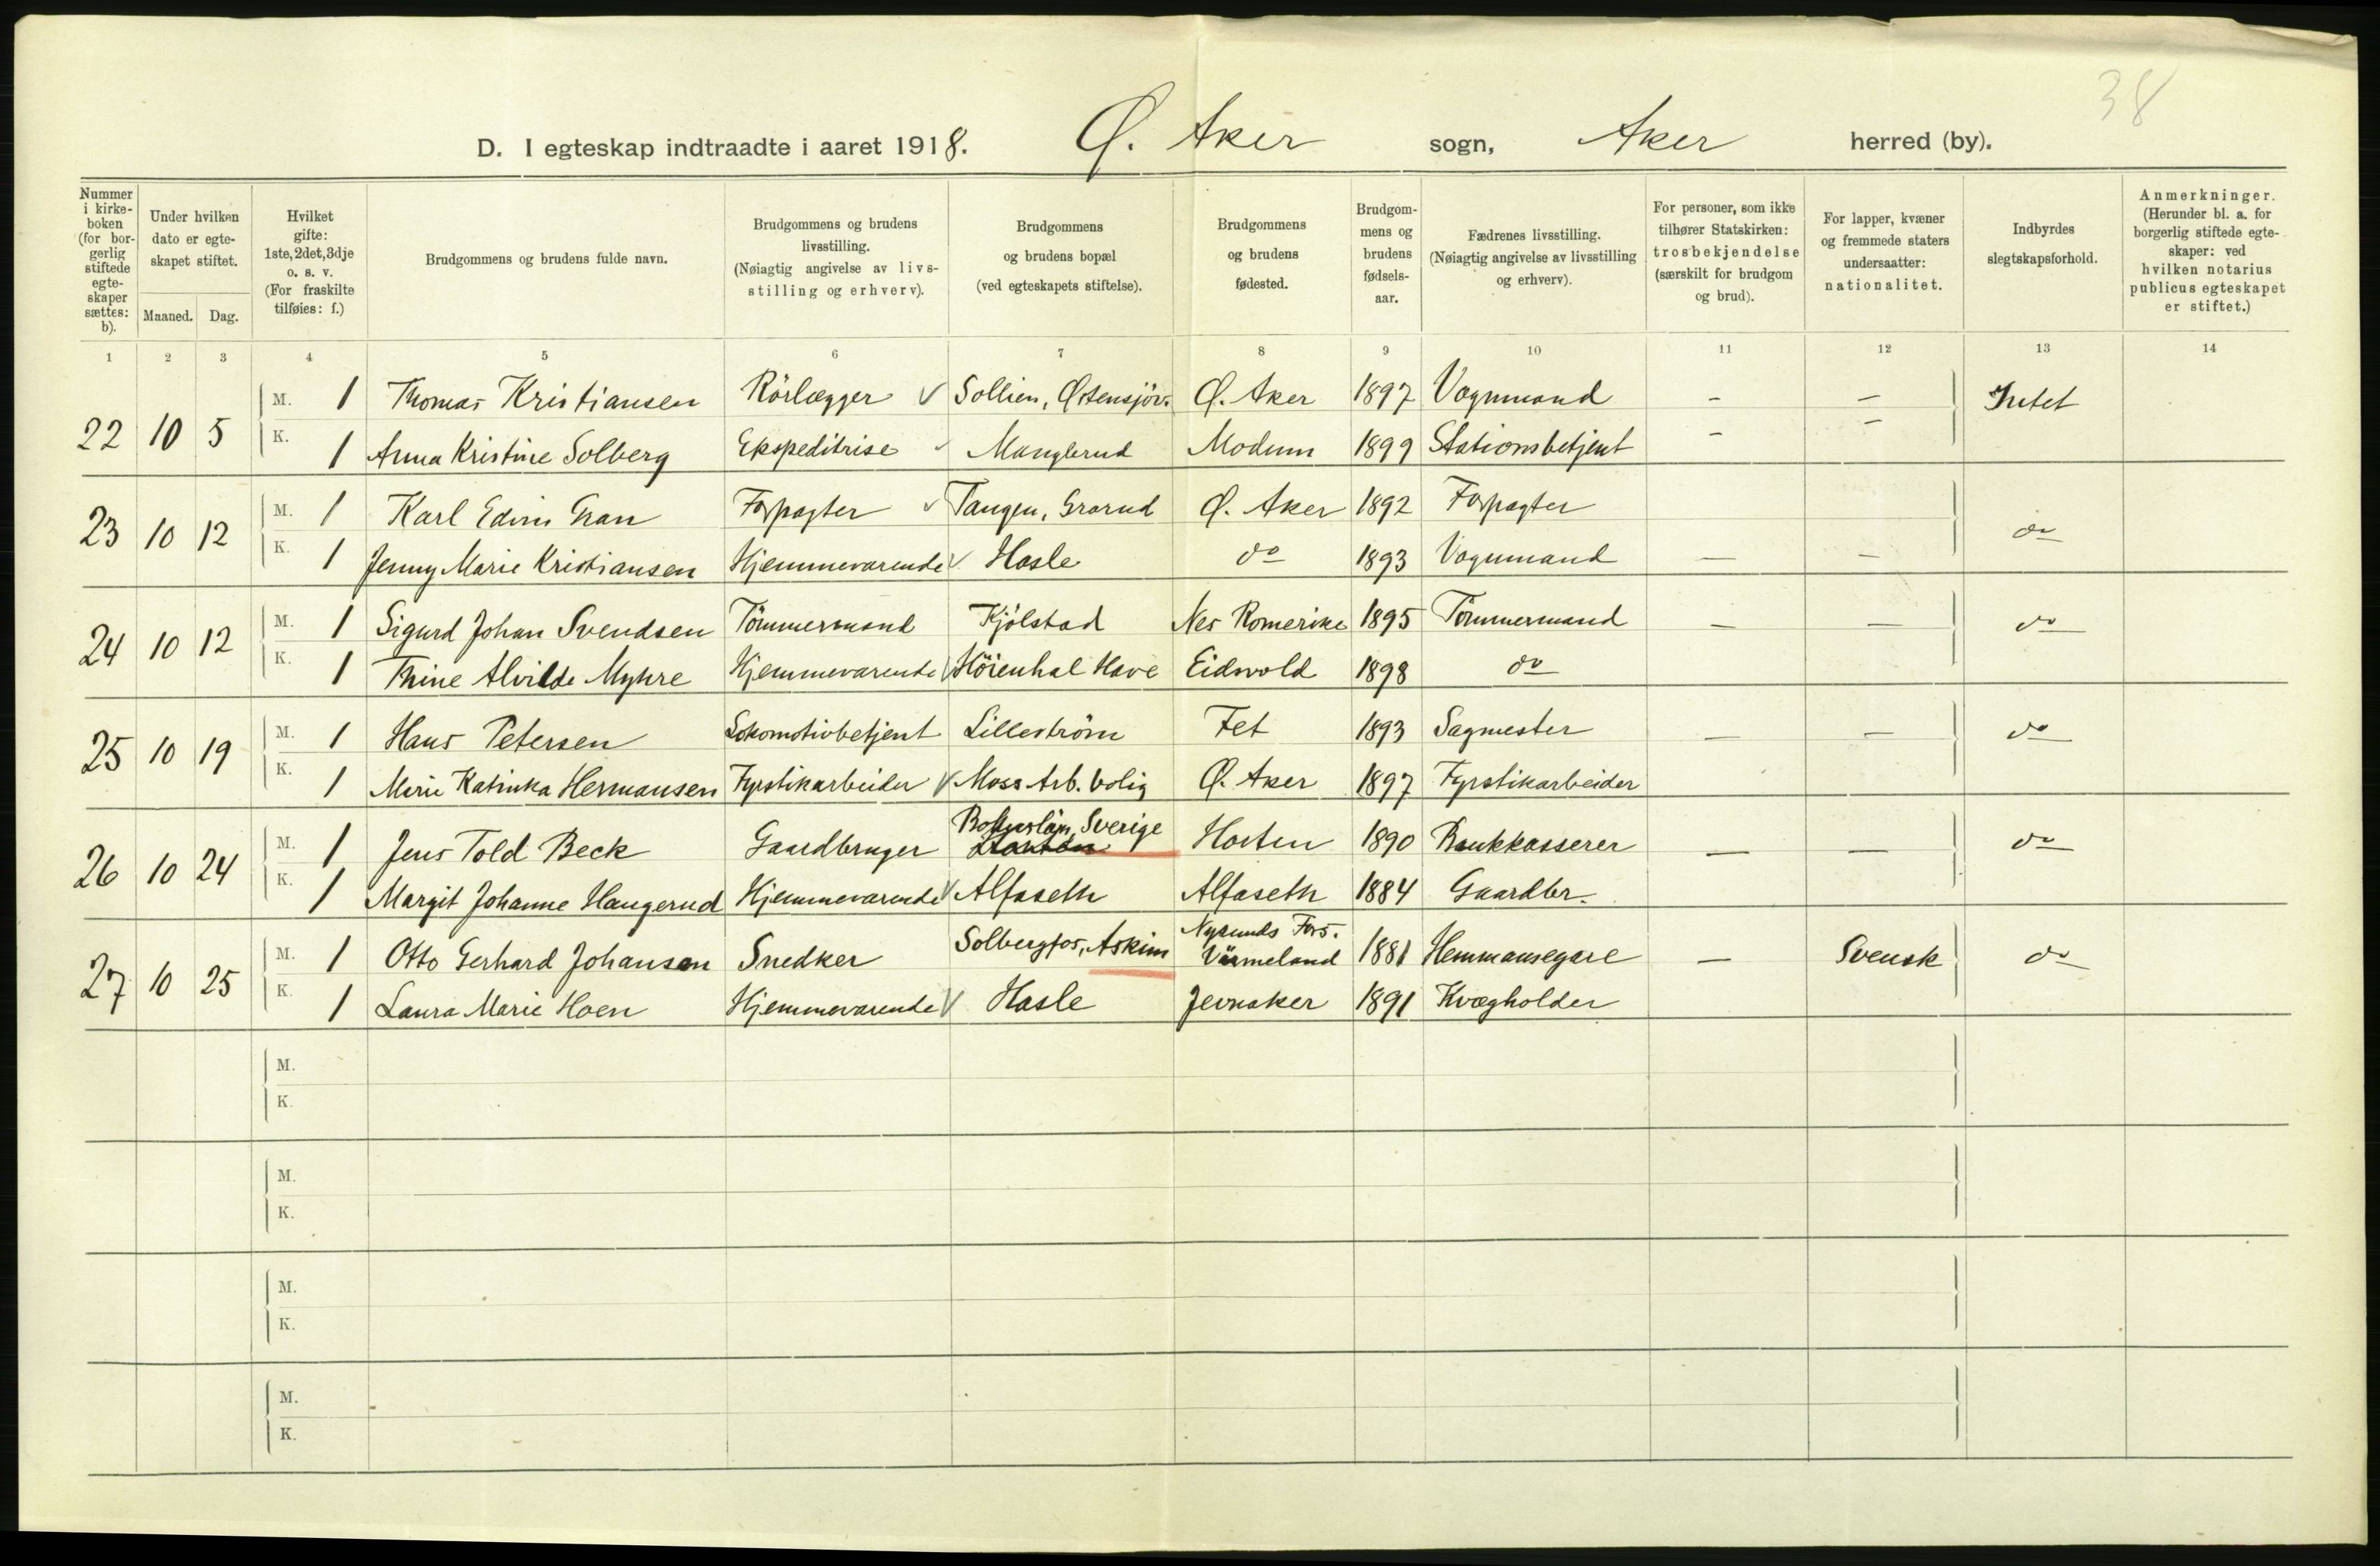 38
D. I egteskap indtraadte i aaret 1918. Ø. Aker sogn, Aker herred (by).
Nummer i kirke-boken (for bor-gerlig stiftede egte-skaper sættes: b).
Under hvilken dato er egte-skapet stiftet.
Maaned. Dag.
Hvilket gifte: 1ste, 2det, 3dje o. s. v. (For fraskilte tilføies: f.)
Brudgommens og brudens fulde navn.
Brudgommens og brudens livsstilling. (Nøiagtig angivelse av livs-stilling og erhverv).
Brudgommens og brudens bopæl (ved egteskapets stiftelse).
Brudgommens og brudens fødested.
Brudgom-mens og brudens fødsels-aar.
Fædrenes livsstilling. (Nøiagtig angivelse av livsstilling og erhverv).
For personer, som ikke tilhører Statskirken: trosbekjendelse (særskilt for brudgom og brud).
For lapper, kvæner og fremmede staters undersaatter: nationalitet.
Indbyrdes slegtskapsforhold.
Anmerkninger. (Herunder bl. a. for borgerlig stiftede egte-skaper: ved hvilken notarius publicus egteskapet er stiftet.)
1 2 3 4 5 6 7 8 9 10 11 12 13 14
M. 1 Thomas Kristiansen Rörlægger ✓ Sollien, Østensjöv. Ø. Aker 1897 Vognmand - - Intet
22 10 5
K. 1 Anna Kristine Solberg Ekspeditrise ✓ Manglerud Modum 1899 Stationsbetjent - -
M. 1 Karl Edvin Gran Forpagter ✓ Tangen, Grorud Ø. Aker 1892 Forpagter
23 10 12 do
K. 1 Jenny Marie Kristiansen Hjemmevarende ✓ Hasle do 1893 Vognmand — —
M. 1 Sigurd Johan Svendsen Tömmermand Kjölstad Nes Romerike 1895 Tömmermand — — do
24 10 12
K. 1 Thine Alvilde Myhre Hjemmevarende ✓ Höienhal Have Eidsvold 1898 do
M. 1 Hans Petersen Lokomotivbetjent Lilleström Fet 1893 Sagmester — — do
25 10 19
K. 1 Marie Katinka Hermansen Fyrstikarbeider ✓ Moss Arb. bolig Ø. Aker 1897 Fyrstikarbeider
Bohuslän, Sverige
M. 1 Jens Told Beck Gaardbruger Horten 1890 Bankkasserer — — do
26 10 24
K. 1 Margit Johanne Haugerud Hjemmevarende ✓ Alfaseth Alfaseth 1884 Gaardbr.
Solbergfos, Askim Nysunds Förs.
M. 1 Otto Gerhard Johanson Snedker Värmeland 1881 Hemmansegare — Svensk do
27 10 25
K. 1 Laura Marie Hoen Hjemmevarende ✓ Hasle Jevnaker 1891 Kvægholder
M.
K.
M.
K.
M.
K.
M.
K.